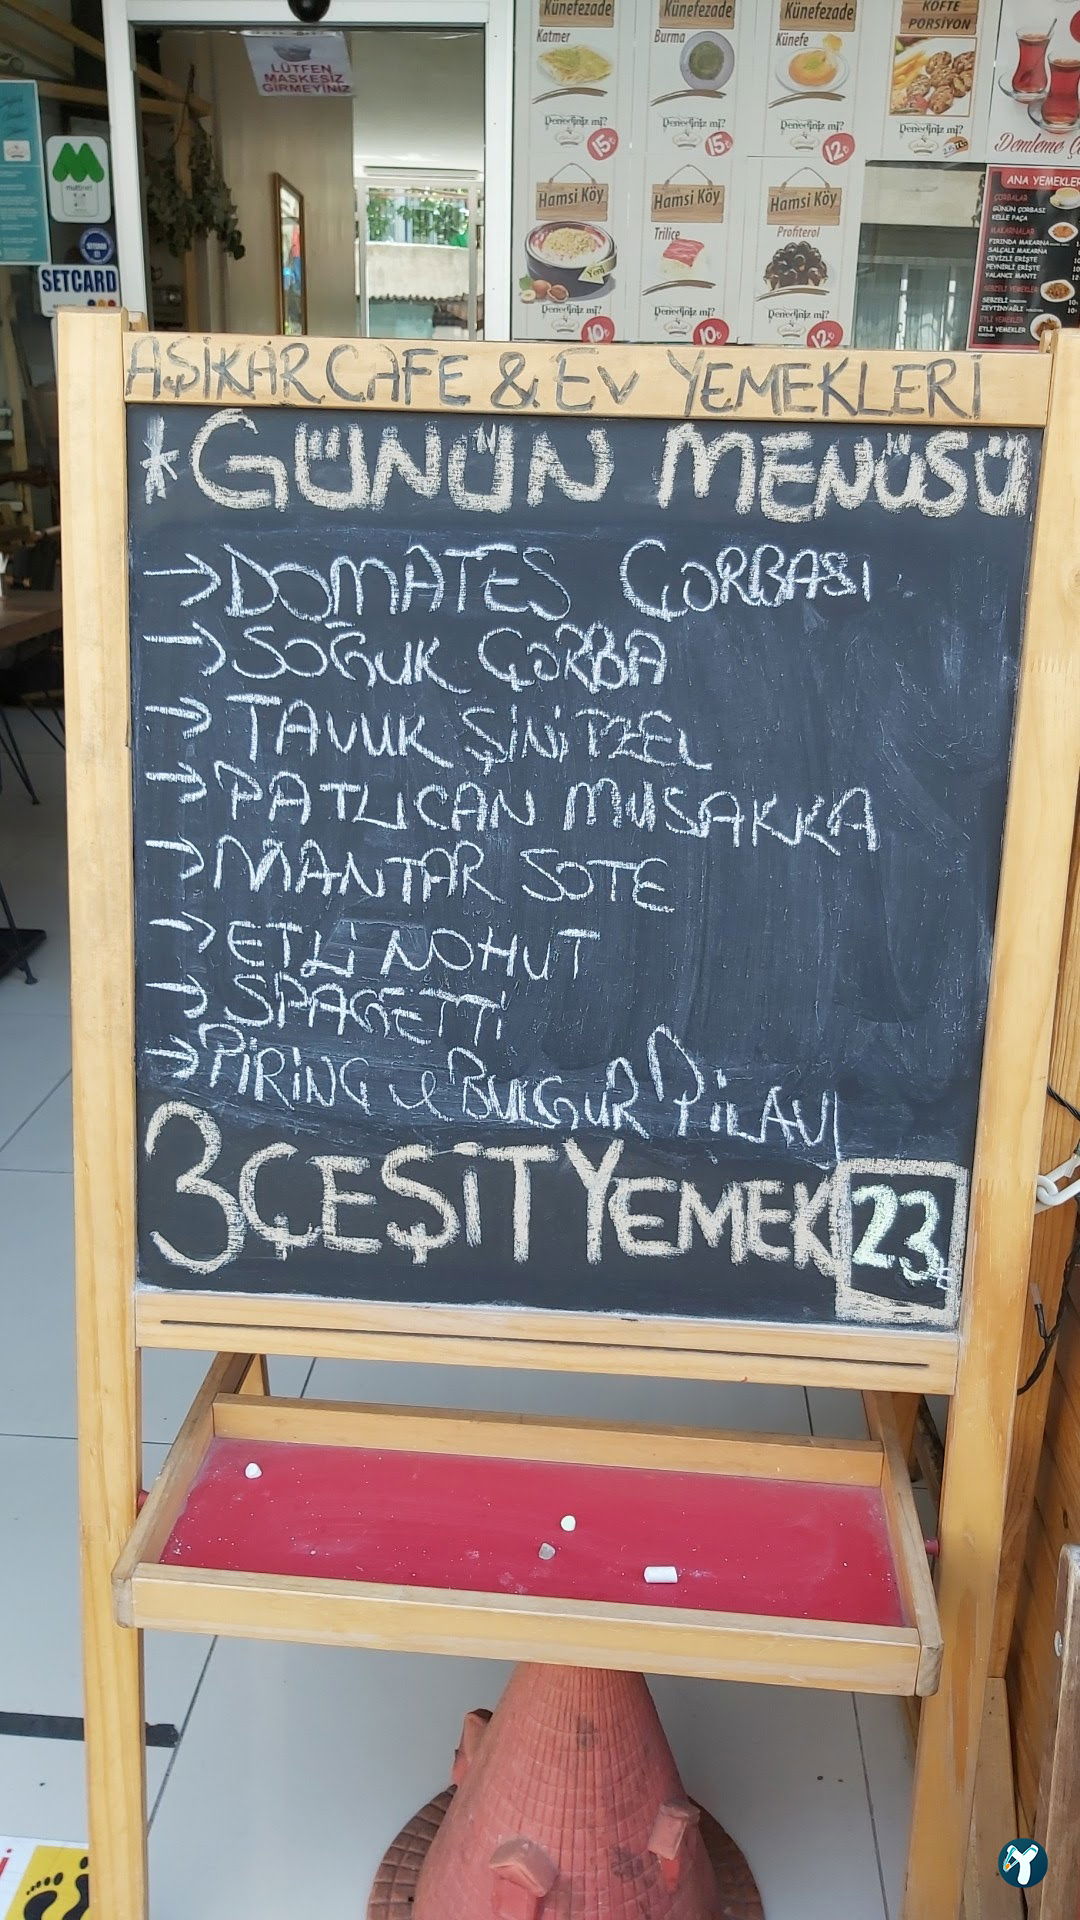 Künefezade
Künefezade
Künefezade
KÖFTE
PORSİYON
Katmer
Burma
Künfe
Denediniz mi?
Denediniz mi?
Denediniz mi?
Denediniz mi?
15
15
12
Demleme
LÜTFEN
MASKESİZ
GİRMEYİNİZ
multinet
SETCARD
Hamsi Köy
Hamsi Köy
Hamsi Köy
Trilice
Profiterol
Yeni
Denediniz mi?
Denediniz mi?
Denediniz mi?
10
10
12
ANA YEMEKLER
ÇORBALAR
GÜNÜN ÇORBASI
KELLE PAÇA
MAKARNALAR
FIRINDA MAKARNA
SALÇALI MAKARNA
CEVİZLİ ERİŞTE
PEYNİRLİ ERİŞTE
YALANCI MANTI
SEBZELİ YEMEKLER
SEBZELİ
ZEYTİNYAĞLI
ETLİ YEMEKLER
ETLİ YEMEKLER
AŞİKAR CAFE & EV YEMEKLERİ
*GÜNÜN MENÜSÜ
→DOMATES ÇORBASI
→SOĞUK ÇORBA
→TAVUK ŞİNİTZEL
→PATLICAN MUSAKKA
→MANTAR SOTE
→ETLİ NOHUT
→SPAGETTİ
→PİRİNÇ ve BULGUR PİLAVI
3 ÇEŞİT YEMEK 23₺